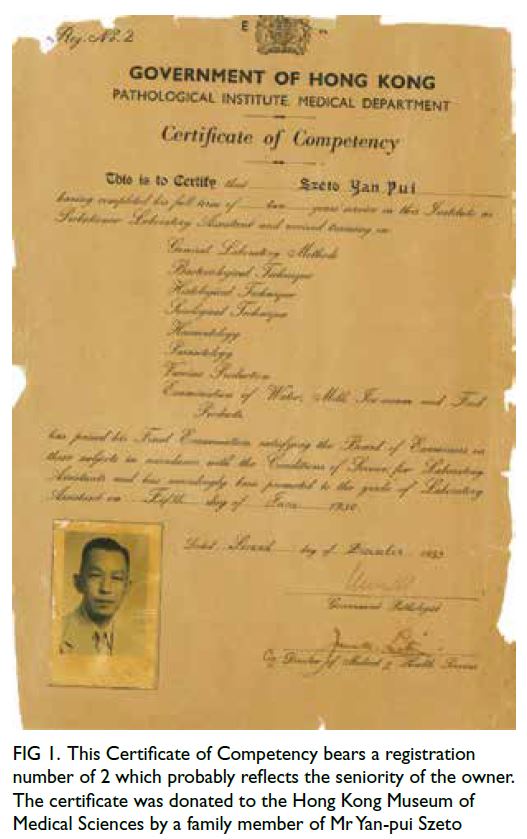 Reg. No. 2
E
GOVERNMENT OF HONG KONG
PATHOLOGICAL INSTITUTE, MEDICAL DEPARTMENT
Certificate of Competency
This is to Certify that Szeto Yan Pui
having completed his full term of two years service in this Institute as
Laboratory Assistant and received training in
General Laboratory Methods
Bacteriological Technique
Histological Technique
Serological Technique
Haematology
Parasitology
Vaccine Production
Examination of Water, Milk, Ice-cream and Food
Products
has passed his Final Examination satisfying the Board of Examiners in
these subjects in accordance with the Conditions of Service for Laboratory
Assistants and has accordingly been promoted to the grade of Laboratory
Assistant on Fifth day of 1930.
Dated day of December
Government Pathologist
Director of Medical & Health Services
FIG 1. This Certificate of Competency bears a registration
number of 2 which probably reflects the seniority of the owner.
The certificate was donated to the Hong Kong Museum of
Medical Sciences by a family member of Mr Yan-pui Szeto